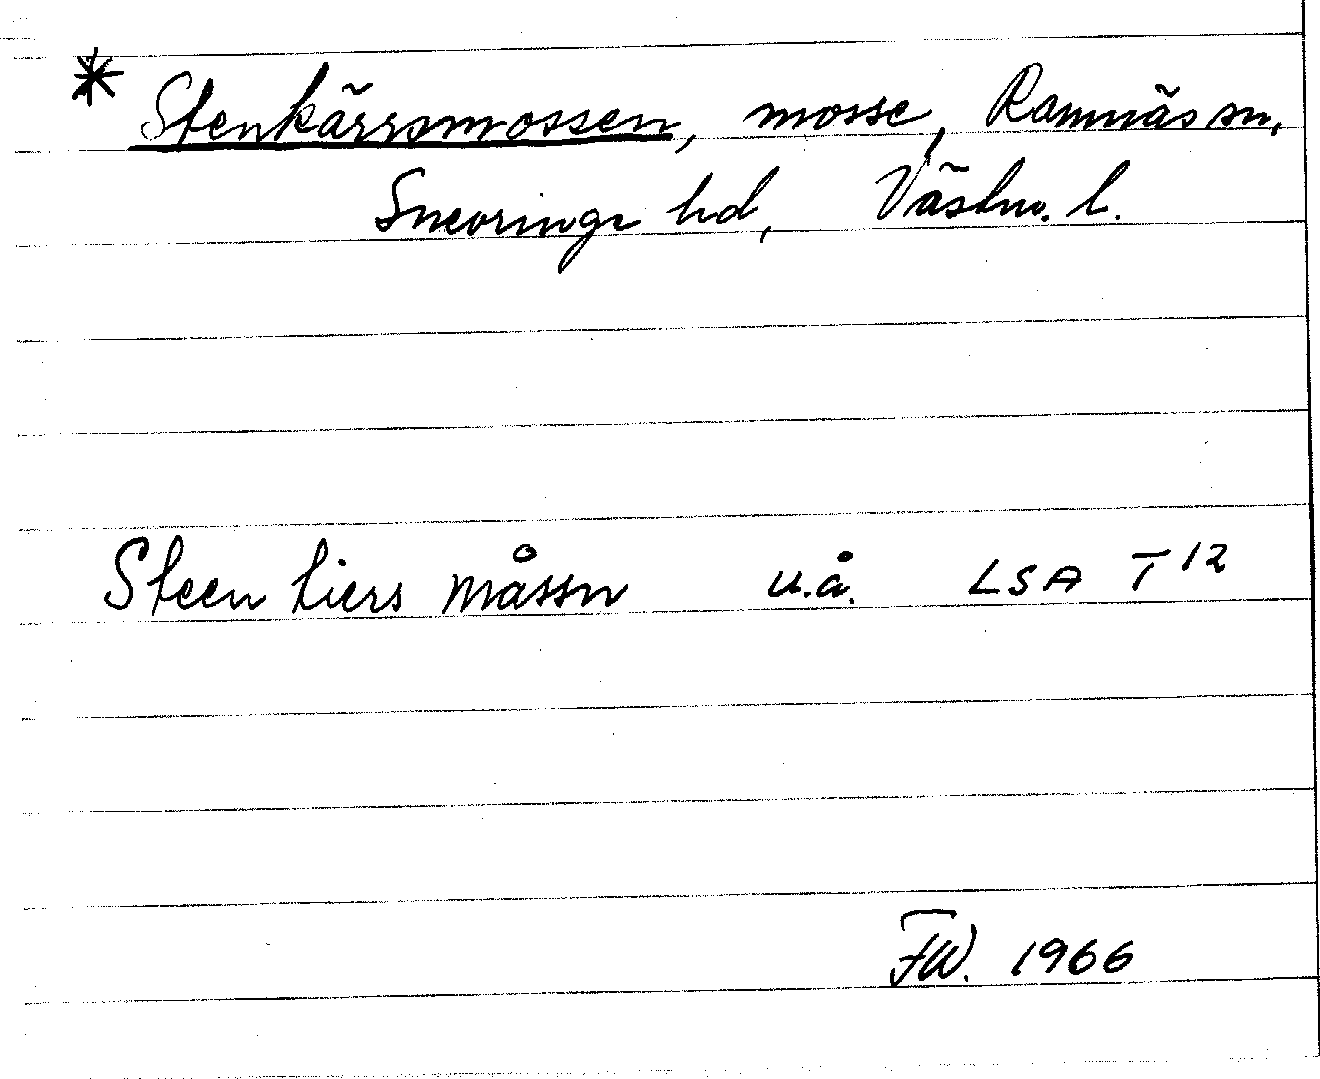 * Stenkärrsmossen, mosse, Ramnäs sn,
Snevringe hd, Västm. l.
Steen kiers måssn u.å. LSA T 12
FW. 1966